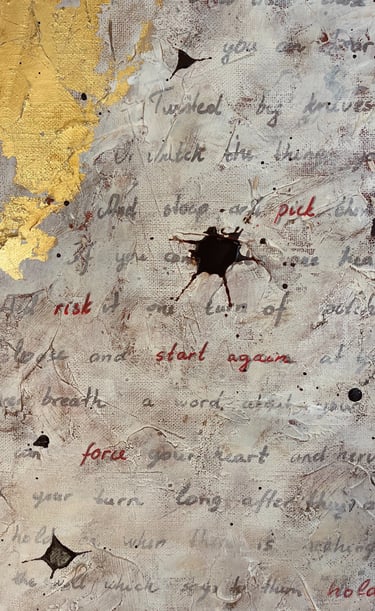 you can bear
Twisted by knaves
Or watch the things
And stoop and pick
If you can one hea
risk it one turn of pitch
and start again at
breath a word about your
force your heart and nerv
your turn long after they a
hold on when there is nothing
the will which says to them hold